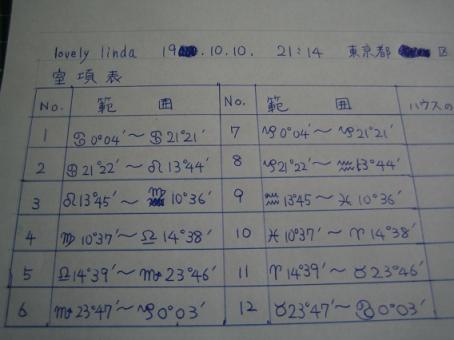 lovely linda 19 .10.10. 21:14 東京都 区
室項表
No. 範囲 No. 範囲 ハウスの
1 ♋0°04′～♋21°21′ 7 ♑0°04′～♑21°21′
2 ♋21°22′～♌13°44′ 8 ♑21°22′～♒13°44′
3 ♌13°45′～♍10°36′ 9 ♒13°45～♓10°36′
4 ♍10°37′～♎14°38′ 10 ♓10°37′～♈14°38′
5 ♎14°39′～♏23°46′ 11 ♈14°39′～♉23°46′
6 ♏23°47′～♑0°03′ 12 ♉23°47′～♋0°03′